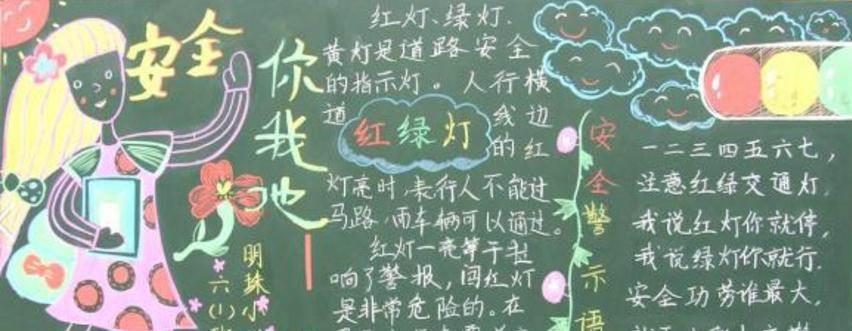 安全
你我他
明珠小
六(1)班
红灯、绿灯、
黄灯是道路安全
的指示灯。人行横
道线边
的红
红绿灯
灯亮时,表行人不能过
马路,而车辆可以通过。
红灯一亮等于拉
响了警报,闯红灯
是非常危险的。在
安全警示语
一二三四五六七,
注意红绿交通灯,
我说红灯你就停,
我说绿灯你就行.
安全功劳谁最大,